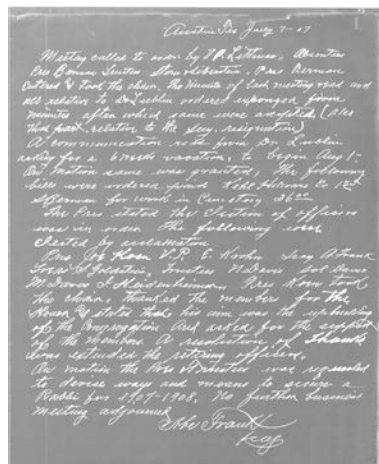 Austin Tex July 7-07
Meeting called to order by V.P. Littman.
Pres Berman
Entered & took the chair, the Minutes of last meeting read and
all relative to Dr Lublin ordered expunged from
minutes after which same were adopted (also
that part relative to the Secy. resignation)
A communication read from Dr. Lublin
asking for a 6 weeks vacation, to begin Aug 1-
On Motion same was granted, the following
bills were ordered paid
for work in Cemetery
The Pres stated the Election of officers
was in order The following were
Elected by acclamation
Pres Joe Koen V.P. E. Koehn Secy A Frank
Goldstein, Trustees N Davis
M Davis I Heidenheimer. Pres Koen took
the chair, thanked the members for the
Honor & stated that his aim was the upbuilding
of the Congregation And asked for the support
of the members A resolution of thanks
was extended the retiring officers.
On motion the Pres & Trustees was requested
to devise ways and means to secure a
Rabbi for 1907-1908. No further business
Meeting adjourned
Abe Frank
Secy